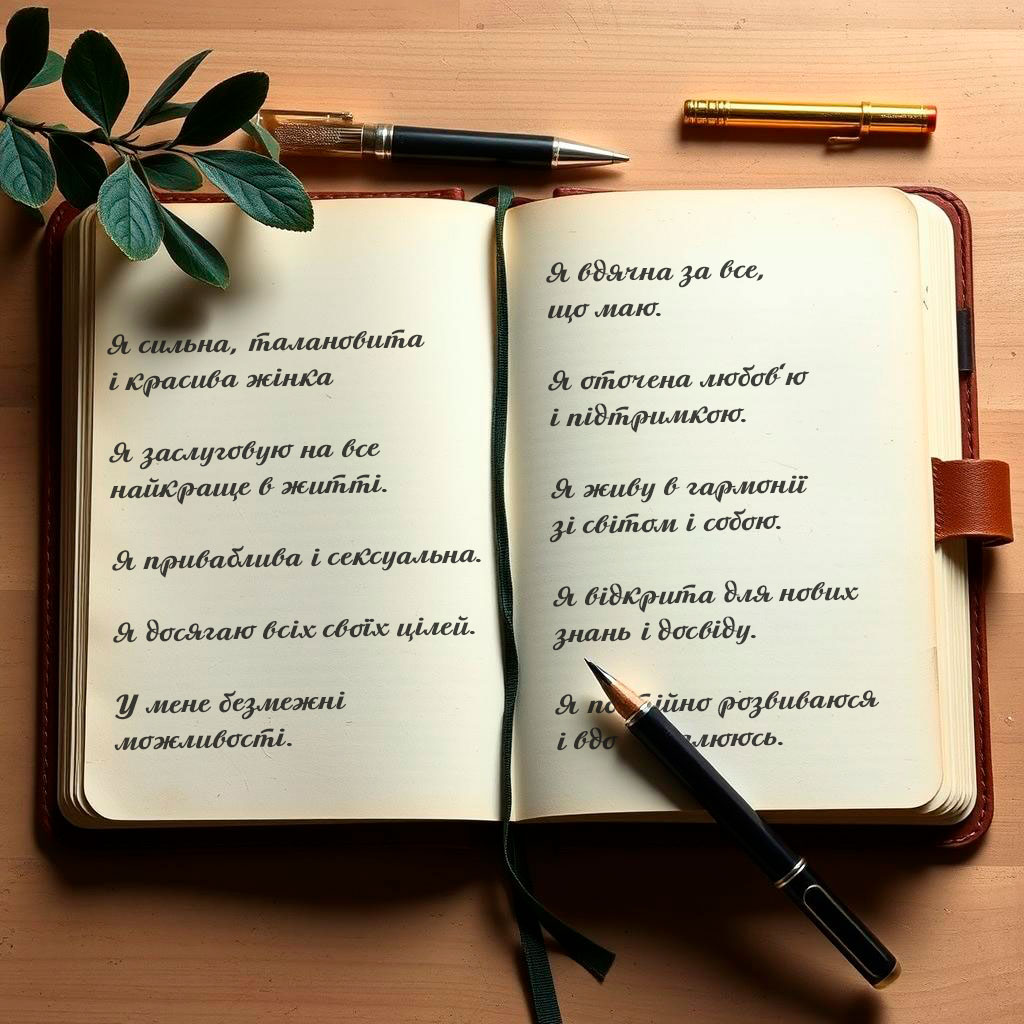 Я сильна, талановита
і красива жінка
Я заслуговую на все
найкраще в житті.
Я приваблива і сексуальна.
Я досягаю всіх своїх цілей.
У мене безмежні
можливості.
Я вдячна за все,
що маю.
Я оточена любов'ю
і підтримкою.
Я живу в гармонії
зі світом і собою.
Я відкрита для нових
знань і досвіду.
Я розвиваюся
і